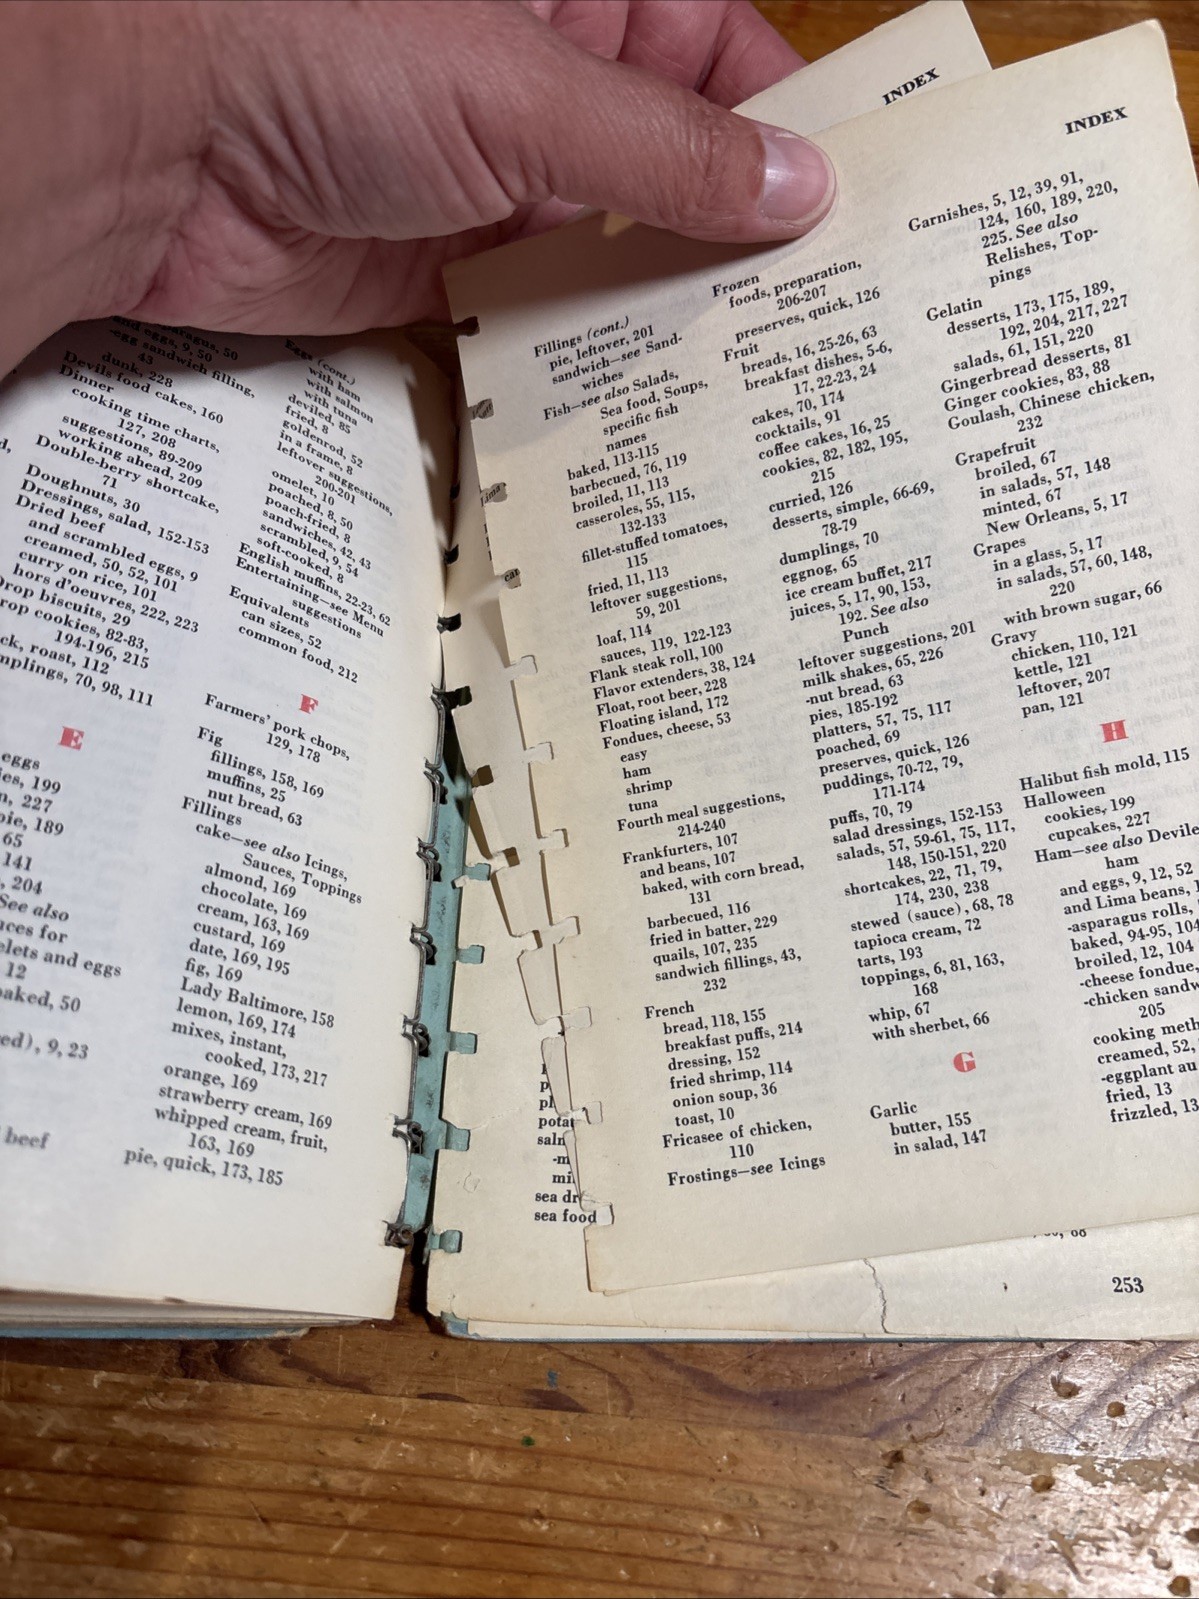 and eggs, 9, 50
-egg sandwich filling,
43
dunk, 228
Devils food cakes, 160
Dinner
cooking time charts,
127, 208
suggestions, 89-209
working ahead, 209
Double-berry shortcake,
71
Doughnuts, 30
Dressings, salad, 152-153
Dried beef
and scrambled eggs, 9
creamed, 50, 52, 101
curry on rice, 101
hors d'oeuvres, 222, 223
rop biscuits, 29
rop cookies, 82-83,
194-196, 215
ck, roast, 112
mplings, 70, 98, 111
E
eggs
ies, 199
n, 227
pie, 189
65
141
, 204
See also
uces for
elets and eggs
12
baked, 50
ed), 9, 23
beef
Eggs (cont.)
with ham
with salmon
with tuna
deviled, 85
fried, 8
goldenrod, 52
in a frame, 8
leftover suggestions,
200-201
omelet, 10
poached, 8, 50
poach-fried, 8
sandwiches, 42, 43
scrambled, 9, 54
soft-cooked, 8
English muffins, 22-23, 62
Entertaining—see Menu
suggestions
Equivalents
can sizes, 52
common food, 212
F
Farmers' pork chops,
129, 178
Fig
fillings, 158, 169
muffins, 25
nut bread, 63
Fillings
cake—see also Icings,
Sauces, Toppings
almond, 169
chocolate, 169
cream, 163, 169
custard, 169
date, 169, 195
fig, 169
Lady Baltimore, 158
lemon, 169, 174
mixes, instant,
cooked, 173, 217
orange, 169
strawberry cream, 169
whipped cream, fruit,
163, 169
pie, quick, 173, 185
INDEX
INDEX
Fillings (cont.)
pie, leftover, 201
sandwich—see Sand-
wiches
Fish—see also Salads,
Sea food, Soups,
specific fish
names
baked, 113-115
barbecued, 76, 119
broiled, 11, 113
casseroles, 55, 115,
132-133
fillet-stuffed tomatoes,
115
fried, 11, 113
leftover suggestions,
59, 201
loaf, 114
sauces, 119, 122-123
Flank steak roll, 100
Flavor extenders, 38, 124
Float, root beer, 228
Floating island, 172
Fondues, cheese, 53
easy
ham
shrimp
tuna
Fourth meal suggestions,
214-240
Frankfurters, 107
and beans, 107
baked, with corn bread,
131
barbecued, 116
fried in batter, 229
quails, 107, 235
sandwich fillings, 43,
232
French
bread, 118, 155
breakfast puffs, 214
dressing, 152
fried shrimp, 114
onion soup, 36
toast, 10
Fricasee of chicken,
110
Frostings—see Icings
Frozen
foods, preparation,
206-207
preserves, quick, 126
Fruit
breads, 16, 25-26, 63
breakfast dishes, 5-6,
17, 22-23, 24
cakes, 70, 174
cocktails, 91
coffee cakes, 16, 25
cookies, 82, 182, 195,
215
curried, 126
desserts, simple, 66-69,
78-79
dumplings, 70
eggnog, 65
ice cream buffet, 217
juices, 5, 17, 90, 153,
192. See also
Punch
leftover suggestions, 201
milk shakes, 65, 226
-nut bread, 63
pies, 185-192
platters, 57, 75, 117
poached, 69
preserves, quick, 126
puddings, 70-72, 79,
171-174
puffs, 70, 79
salad dressings, 152-153
salads, 57, 59-61, 75, 117,
148, 150-151, 220
shortcakes, 22, 71, 79,
174, 230, 238
stewed (sauce), 68, 78
tapioca cream, 72
tarts, 193
toppings, 6, 81, 163,
168
whip, 67
with sherbet, 66
G
Garlic
butter, 155
in salad, 147
Garnishes, 5, 12, 39, 91,
124, 160, 189, 220,
225. See also
Relishes, Top-
pings
Gelatin
desserts, 173, 175, 189,
192, 204, 217, 227
salads, 61, 151, 220
Gingerbread desserts, 81
Ginger cookies, 83, 88
Goulash, Chinese chicken,
232
Grapefruit
broiled, 67
in salads, 57, 148
minted, 67
New Orleans, 5, 17
Grapes
in a glass, 5, 17
in salads, 57, 60, 148,
220
with brown sugar, 66
Gravy
chicken, 110, 121
kettle, 121
leftover, 207
pan, 121
H
Halibut fish mold, 115
Halloween
cookies, 199
cupcakes, 227
Ham—see also Devile
ham
and eggs, 9, 12, 52
and Lima beans, 1
-asparagus rolls,
baked, 94-95, 104
broiled, 12, 104
-cheese fondue,
-chicken sandw
205
cooking meth
creamed, 52,
-eggplant au
fried, 13
frizzled, 13
p
pl
potat
saln
-m
mi
sea dr
sea food
253